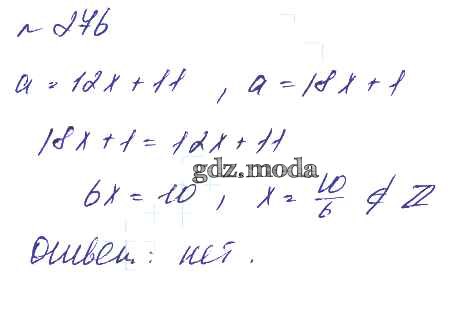 ~ 276
a = 12x + 11 , a = 18x + 1
18x + 1 = 12x + 11
gdz.moda
6x = 10 , x = 10/6 ∉ ℤ
Ответ: нет.